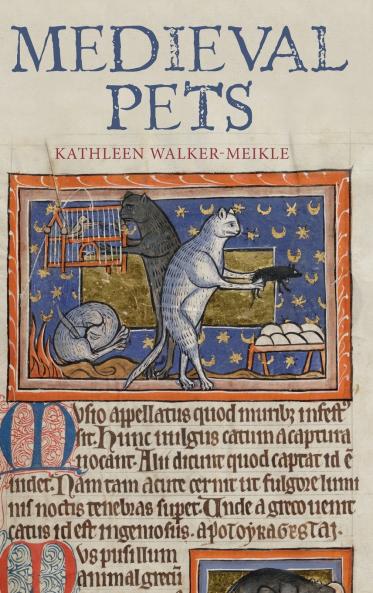 MEDIEVAL
PETS
KATHLEEN WALKER-MEIKLE
Musio appellatus quod muribz infest
sit. Hunc uulgus catum a captura
uocant. Alii dicunt quod captat id ē
uidet. Nam tam acute cernit ut fulgore lumi
nis noctis tenebras superet. Unde a greco uenit
catus id est ingeniosus.
Mus pusillum
animal grecū